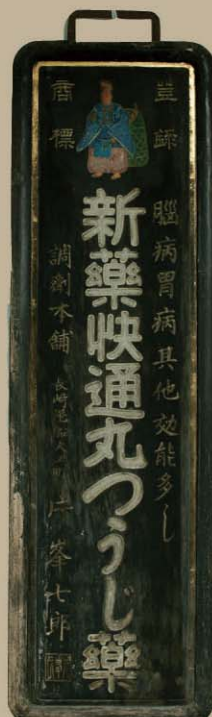 登録
商標
脳病胃病其他効能多し
新藥快通丸つうじ藥
調劑本舗
峯七郎